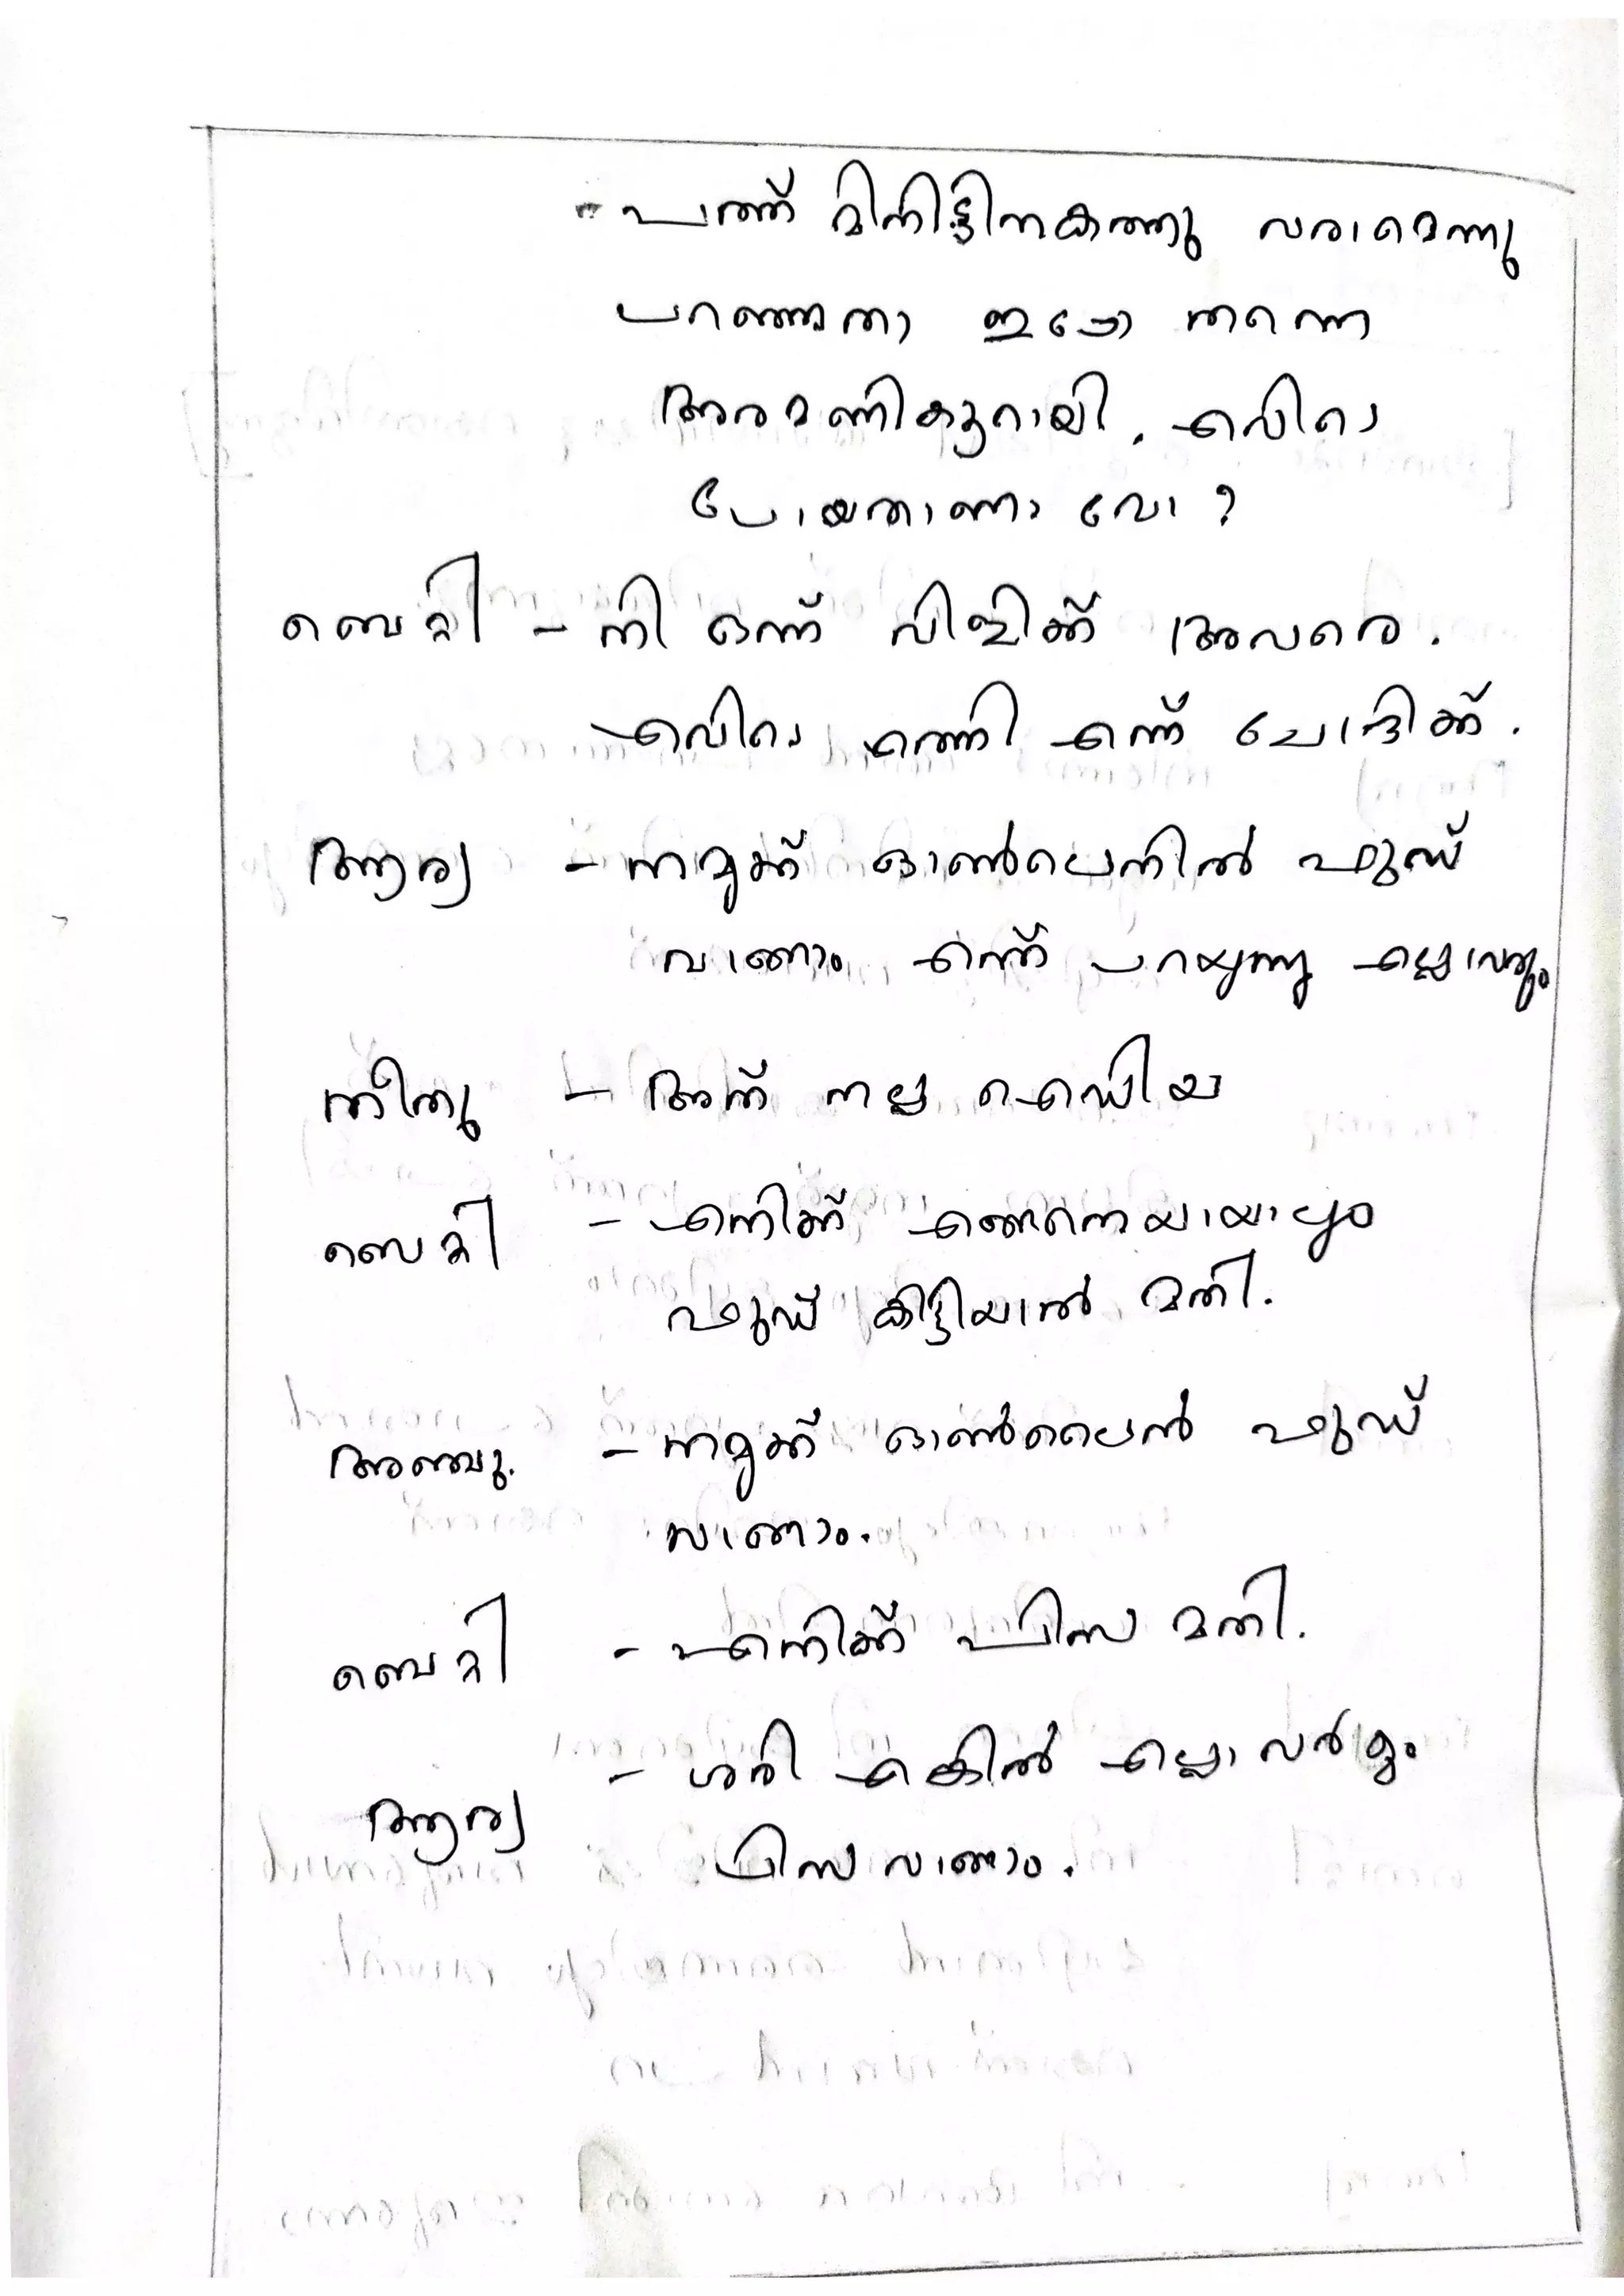 - പത്ത് മിനിട്ടിനകത്തു വരാമെന്നു
പറഞ്ഞതാ ഇപ്പോ തന്നെ
അരമണികൂറായി. എവിടെ
പോയതാണാ വോ?
ബെറ്റി - നി ഒന്ന് വിളിക്ക് അവരെ.
എവിടെ എത്തി എന്ന് ചോദിക്ക്.
ആര്യ - നമുക്ക് ഓൺലെനിൽ ഫുഡ്
വാങ്ങാം എന്ന് പറയുന്നു എല്ലാവരും
നീതു - അത് നല്ല ഐഡിയ
ബെറ്റി - എനിക്ക് എങ്ങനെയായാലും
ഫുഡ് കിട്ടിയാൽ മതി.
അഞ്ചു. - നമുക്ക് ഓൺലൈൻ ഫുഡ്
വാങ്ങാം.
ബെറ്റി - എനിക്ക് പിസ മതി.
ആര്യ - ശരി എങ്കിൽ എല്ലാവർക്കും
പിസ വാങ്ങാം.